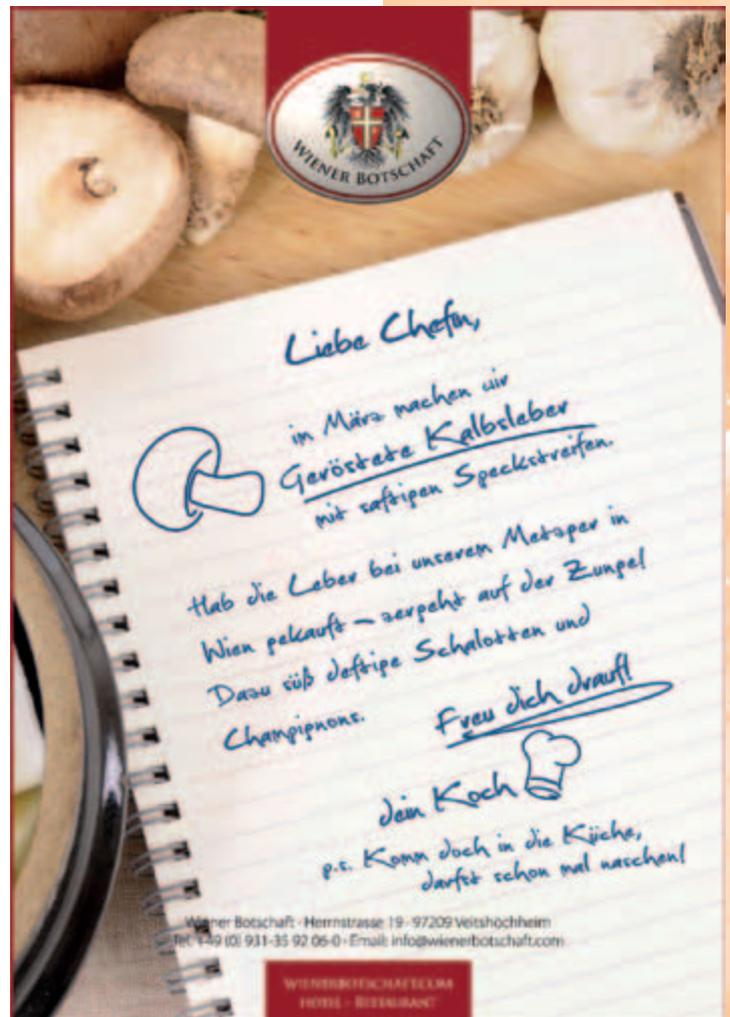 WIENER BOTSCHAFT
Liebe Chefin,
in März machen wir
Geröstete Kalbsleber
mit saftigen Speckstreifen.
Hab die Leber bei unserem Metzger in
Wien gekauft – zergeht auf der Zunge!
Dazu süß deftige Schalotten und
Champignons.
Freu dich drauf!
dein Koch
p.s. Komm doch in die Küche,
darfst schon mal naschen!
Wiener Botschaft · Herrnstrasse 19 · 97209 Veitshöchheim
Tel. +49 (0) 931-35 92 06-0 · Email: info@wienerbotschaft.com
WIENERBOTSCHAFT.COM
HOTEL - RESTAURANT